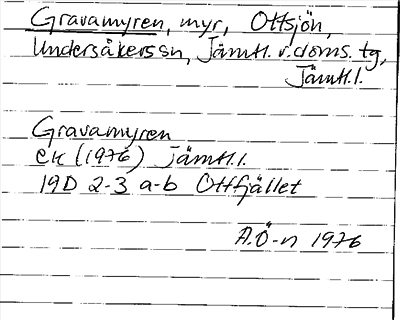 Gravamyren, myr, Ottsjön,
Undersåkers sn, Jämtl. v. doms. tg,
Jämtl. l.
Gravamyren
ek (1976) Jämtl. l.
19D 2-3 a-b Ottfjället
A.Ö-n 1976